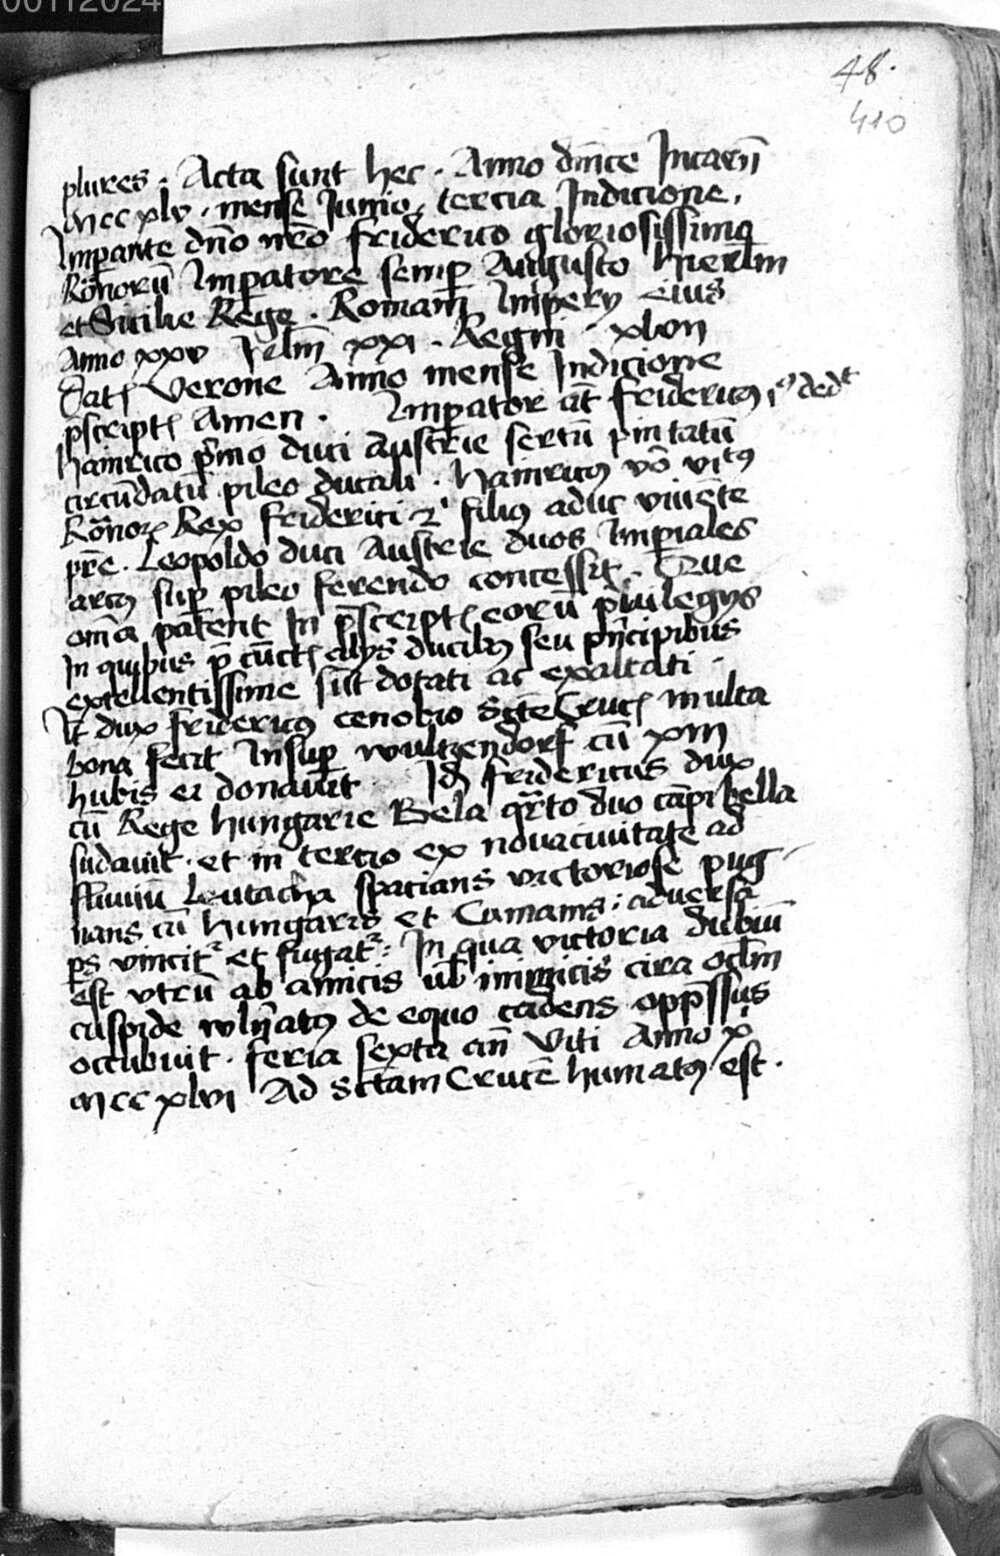 00112024
48.
410
plures . Acta sunt hec . Anno dn̄ice Incarn̄
Mcc xlv . mense Junio , tercia Indicione ,
Imp̱ante dn̄o nr̄o friderico gloriosissimo
Rōnorū Imp̱atore semp̱ Augusto Hierlm̄
et Sicilie Rege . Roman̄ Impery eius
Anno xxv Jrlm̄ xxi . Regni xlvii
Dat Verone Anno mense Indicione
p̄script Amen . Imp̱ator at̄ fridericus i⁹ dedt
hainrico p̄mo duci Austrie sertū pintatū
circūdatū pileo ducali . hainricus vō vitus
Rōnoꝝ Rex friderici 2i filius aduc viuēte
pr̄e . Leopoldo duci Austrie duos Imp̱iales
arcus sup̱ pileo ferendo concessit . Que
om̄a patent In p̄script eorū p̄uilegys
In quibus p̄ cūctꝭ alys ducibus seu pn̄cipibus
excellentissime sūt dotati ac exaltati .
It̄ dux fridericus cenobio Sctē Crucꝭ multa
bona fecit Insup̱ wultzendorf cū xiii
hubis ei donauit Id̄ fridericus dux
cū Rege hungarie Bela qrto duo cāpi bella
sudauit . et in tercio ex nouaciuitate ad
fluuiū Leutacha spacians victoriose pug
nans cū hungaris et Cumanis ; aduersa
ps vincitr et fugatr : In qua victoria dubiū
est vtrū ab amicis ul̄ inimicis circa oclm̄
cuspide wln̄atus de equo cadens opp̄ssus
occubuit . feria sexta an̄ Viti Anno xi
Mcc xlvi Ad Sctam Crucē humatus est .